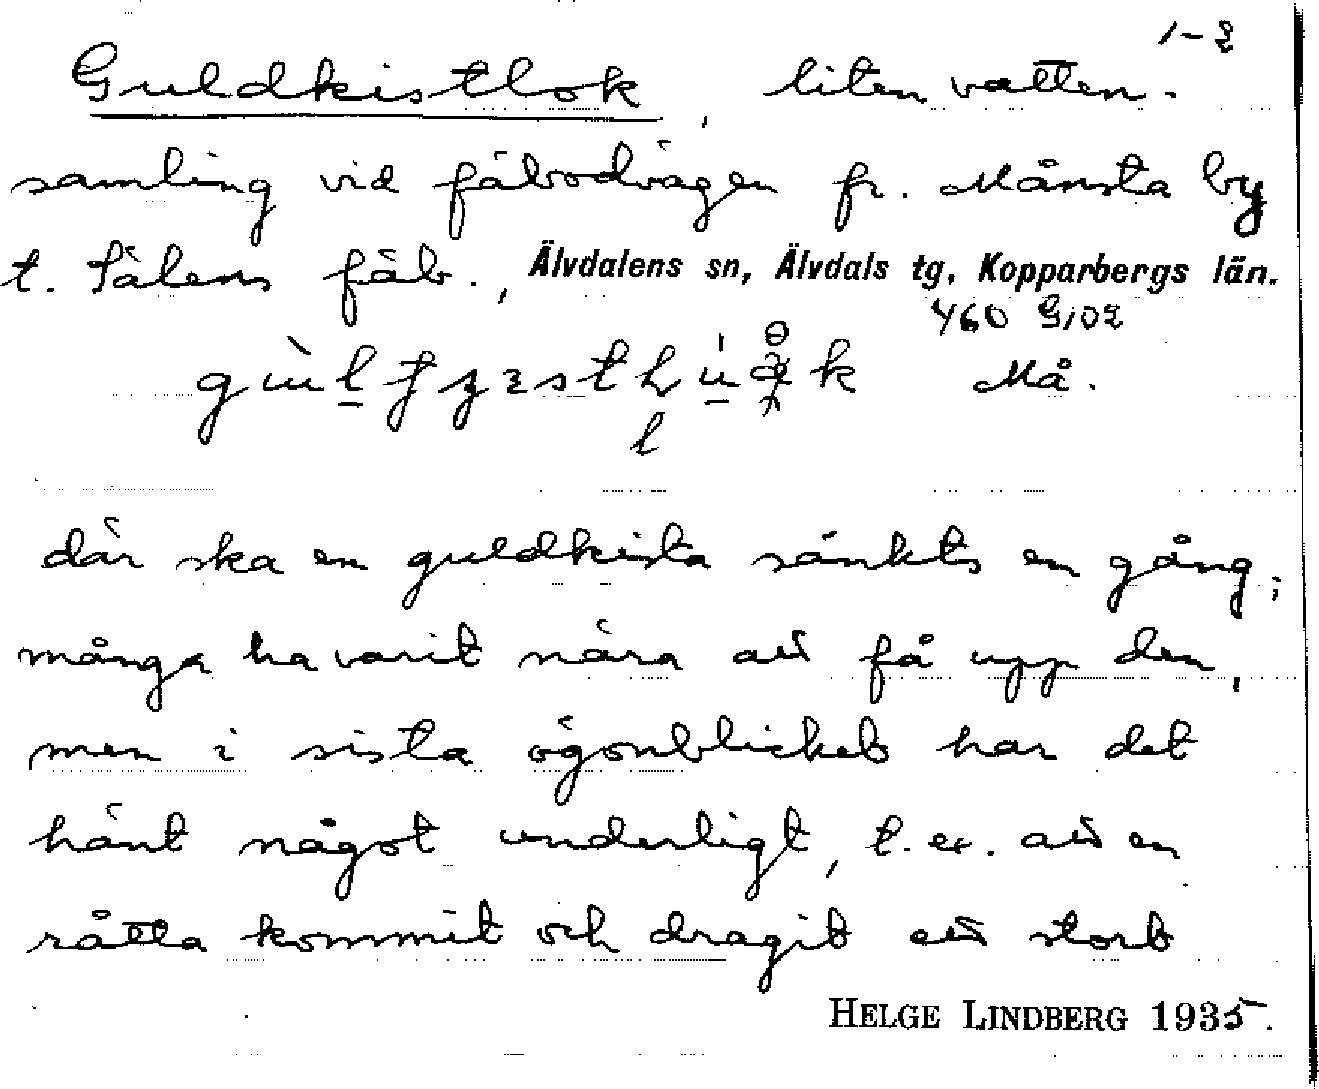 1-2
Guldkistlok, liten vatten-
samling vid fäbodvägen fr. Månsta by
t. Sälens fäb., Älvdalens sn, Älvdals tg, Kopparbergs län.
460 G102
Må.
där ska en guldkista sänkts en gång;
många ha varit nära att få upp den,
men i sista ögonblicket har det
hänt något underligt, t.ex. att en
råtta kommit och dragit ett stort
HELGE LINDBERG 1935.